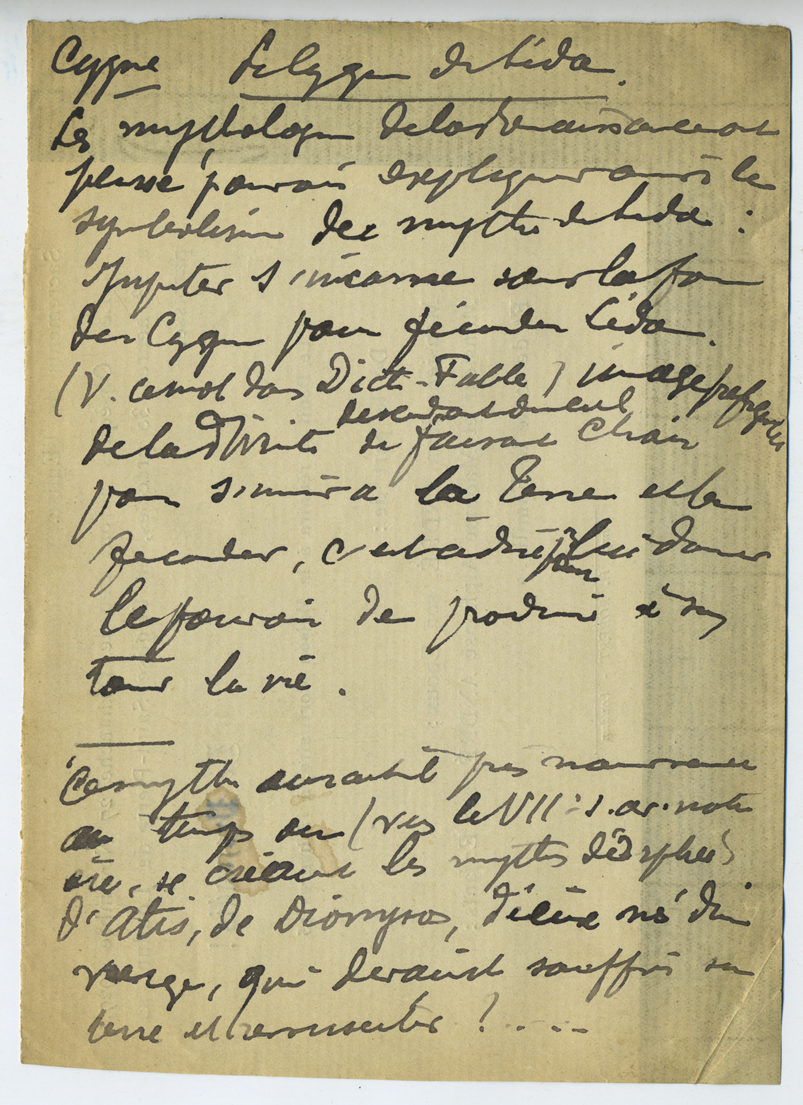 Cygne Le Cygne de Léda.
Les mythologues de la Renaissance ont
pensé pouvoir expliquer ainsi le
symbolisme du mythe de Léda :
Jupiter s'incarne sous la forme
du Cygne pour féconder Léda.
(V. ce mot dans Dict. Fable) image préfigurée
descendant du ciel
de la Divinité se faisant Chair
pour s'unir à la Terre et la
féconder, c'est à dire pour lui donner
le pouvoir de produire à son
tour la vie.
Ce mythe aurait-il pris naissance
au temps où (vers le VIIe s. av. notre
ère, se créaient les mythes d'Orphée
d'Atis, de Dionysos, dieux nés d'une
vierge, qui devaient souffrir sur
terre et ressusciter ?....